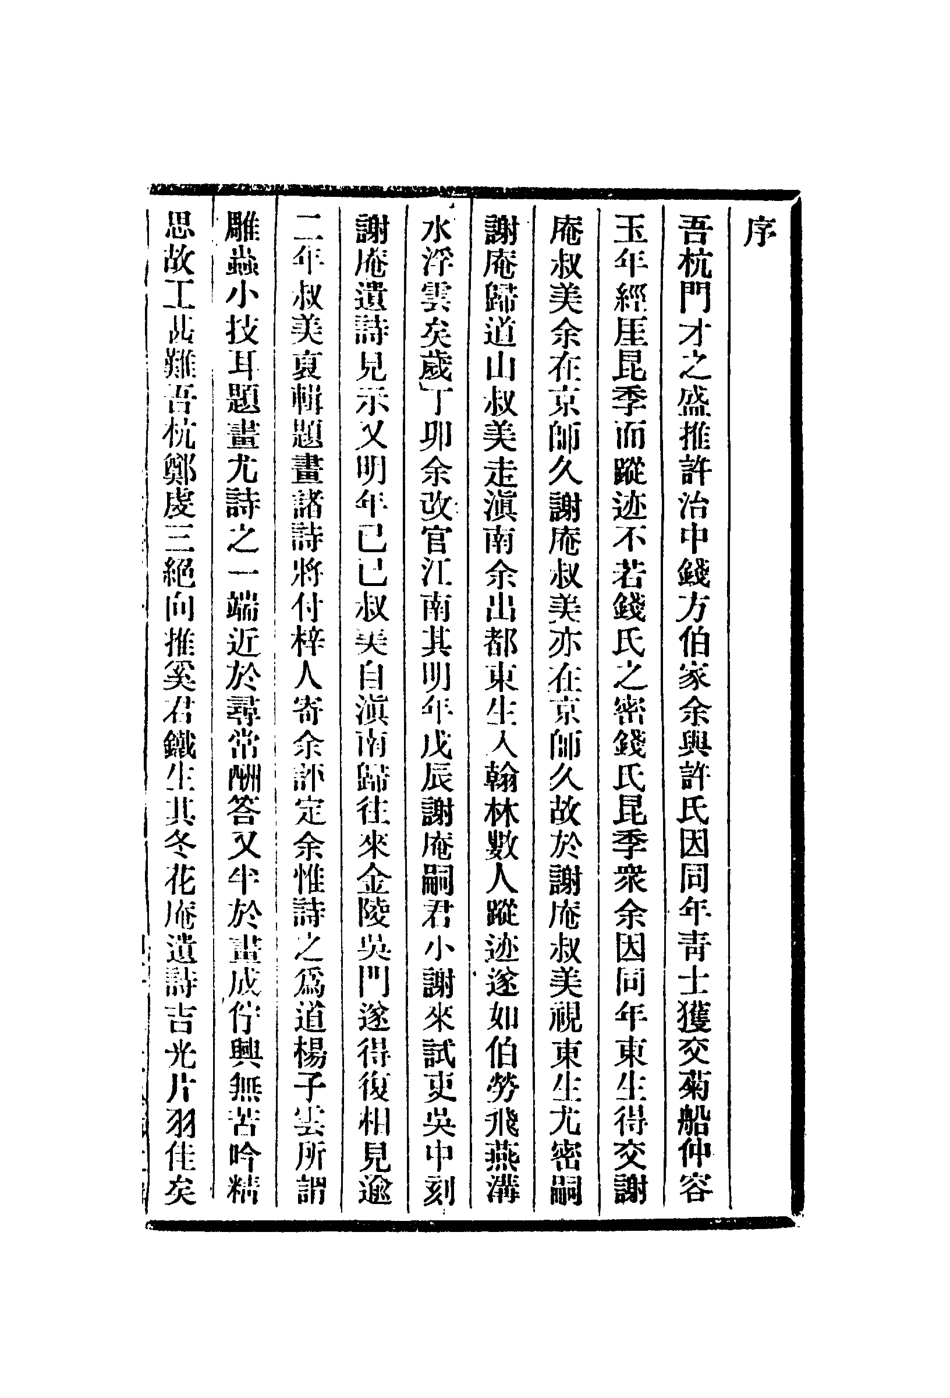 序
吾杭門才之盛推許治中錢方伯家余與許氏因同年青士獲交菊船仲容
玉年經厓昆季而蹤迹不若錢氏之密錢氏昆季衆余因同年東生得交謝
庵叔美余在京師久謝庵叔美亦在京師久故於謝庵叔美視東生尤密嗣
謝庵歸道山叔美走滇南余出都東生入翰林數人蹤迹遂如伯勞飛燕溝
水浮雲矣歲丁卯余改官江南其明年戊辰謝庵嗣君小謝來試吏吳中刻
謝庵遺詩見示又明年己巳叔美自滇南歸往來金陵吳門遂得復相見逾
二年叔美裒輯題畫諸詩將付梓人寄余評定余惟詩之爲道楊子雲所謂
雕蟲小技耳題畫尤詩之一端近於尋常酬答又半於畫成佇興無苦吟精
思故工甚難吾杭鄭虔三絕向推奚君鐵生其冬花庵遺詩吉光片羽佳矣